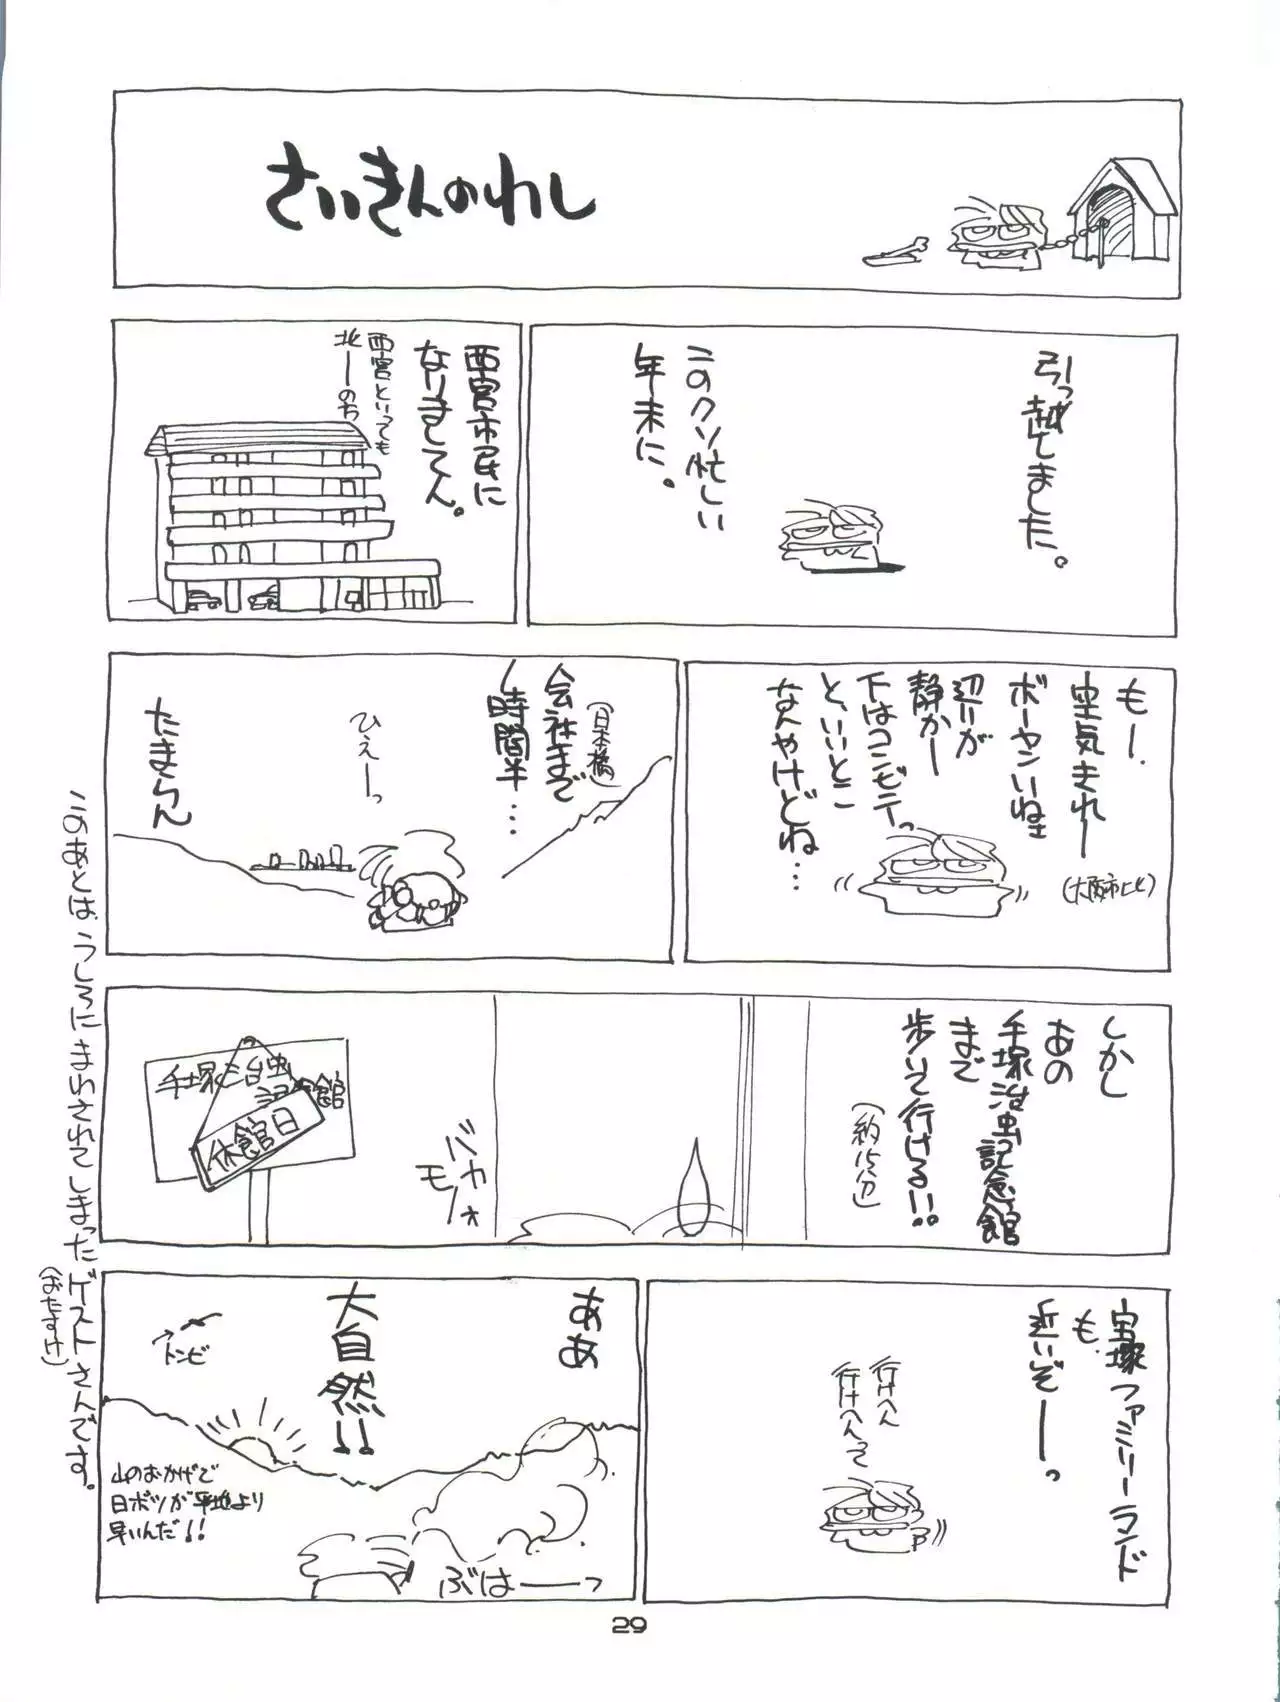 さいきんのわし
引っ越しました。
このクソ忙しい
年末に。
西宮市民に
なりましてん。
西宮といっても
北ーのち
もー、
空気きれー
(大阪市比)
ボーヤンいねェ
辺りが
静かー
下はコンビニでっ
と、いいとこ
なんやけどね…
会社まで
(日本橋)
1時間半…
ひえーっ
たまらん
しかし
あの
手塚治虫記念館
まで
歩いて行ける!!
(約15分)
バカ
モノォ
手塚治虫
記念館
休館日
宝塚ファミリーランド
も、
近いぞーっ
行けへん
行けへんって
ああ
大自然!!
トンビ
山のおかげで
日ボツが平地より
早いんだ!!
ぶはーっ
このあとは、うしろにまわされてしまったゲストさんです。
(おたすけ)
29